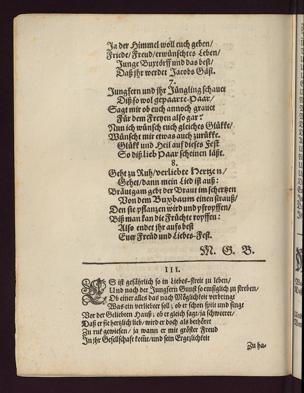 Ja der Himmel woll euch geben/
Friede/ Freud/ erwünschtes Leben/
Junge Buxtörff und das best/
Daß ihr werdet Jacobs Gäst.
7.
Jungfern und ihr Jüngling schauet
Diß so wol gepaarte Paar/
Sagt mit ob euch annoch grauet
Für dem Freyen also gar?
Nun ich wünsch euch gleiches Glükke/
Wünscht mir etwas auch zurükke.
Glükk und Heil auf dieses Fest
So diß lieb Paar scheinen läßt.
8.
Geht zu Ruh/ verliebte Hertzen/
Gehet/ dann mein Lied ist auß:
Bräutgam gebt der Braut im schertzen
Von dem Buxbaum einen strauß/
Den sie pflanzen wird und pfropffen/
Biß man kan die Früchte ropffen:
Also endet ihr aufs best
Euer Freüd und Liebes-Fest.
M. G. B.
III.
ES ist gefährlich so in Liebes-streit zu leben/
Und nach der Jungfern Gunst so emsiglich zu streben/
Ob einer alles das nach Möglichkeit verbringt
Was ein verliebter soll; ob er schon spielt und singt
Vor der Geliebten Hauß; ob er gleich sagt/ ja schweeret/
Daß er sie hertzlich lieb/ wird er doch als bethöret
Zu ruk gewiesen/ ja wann er mit gröster Freud
In ihr Gesellschaft komt/ und sein Ergezlichkeit
Zu ha-